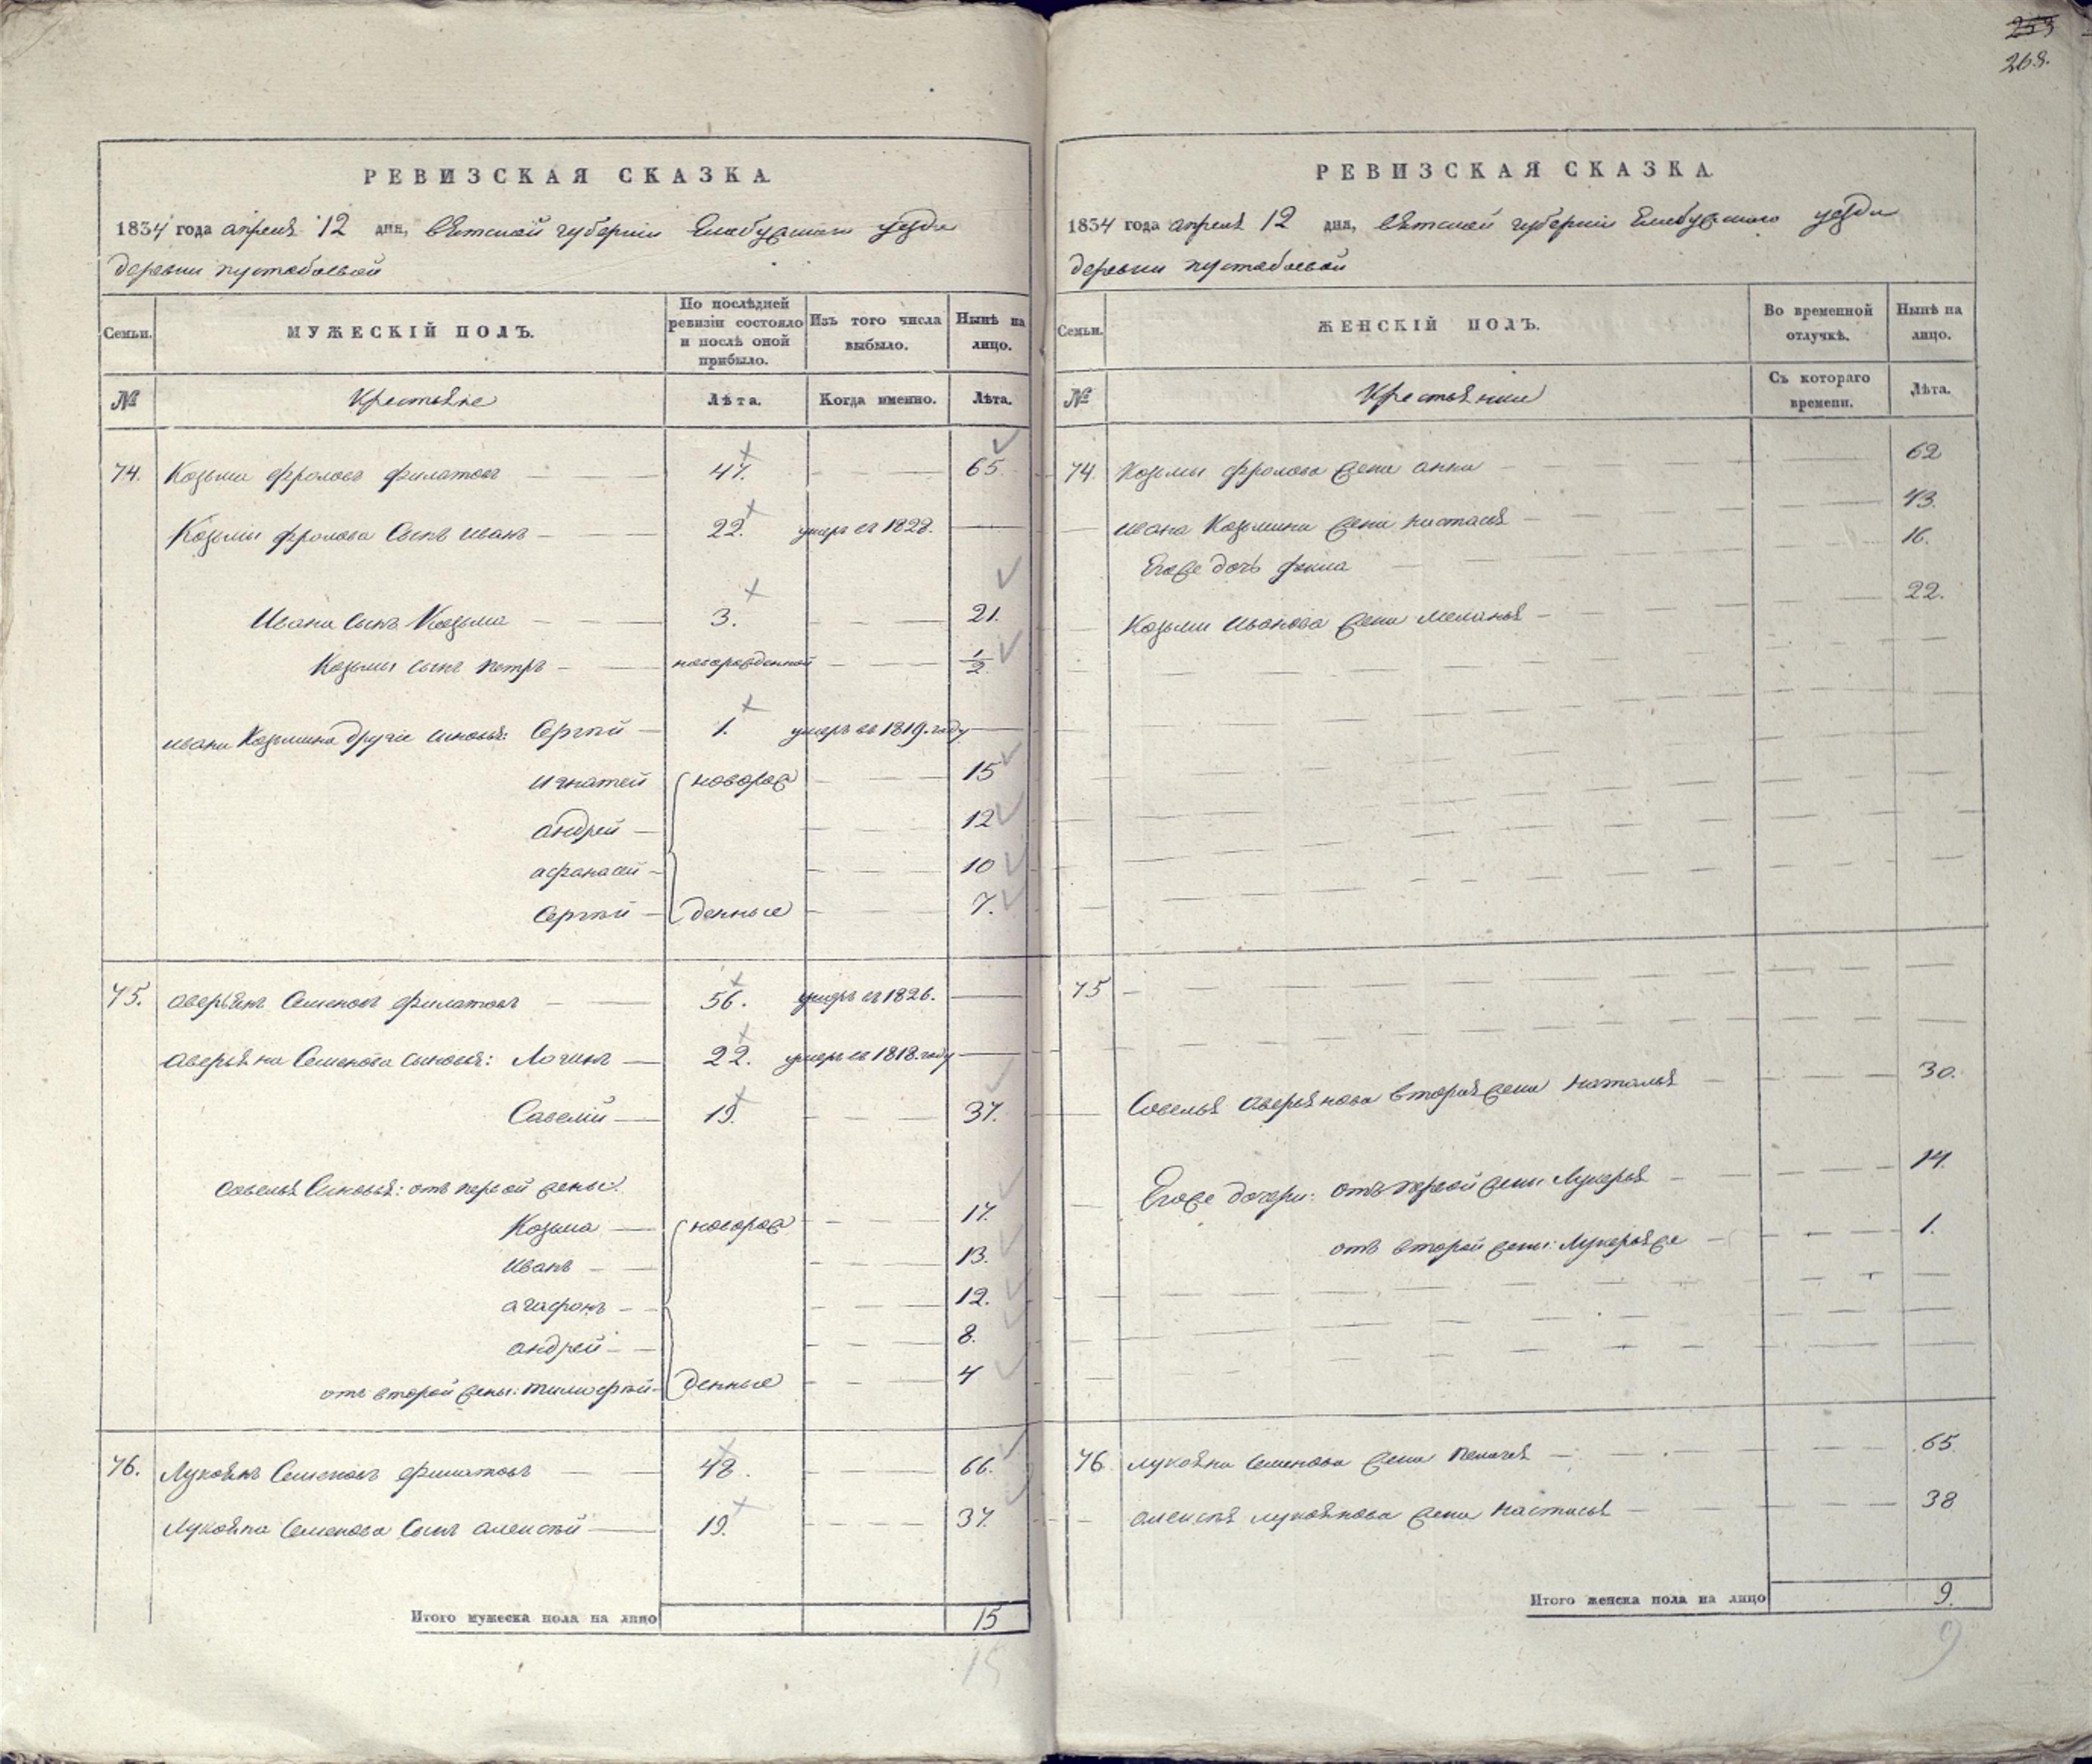 253
268.
РЕВИЗСКАЯ СКАЗКА
1834 года апреля 12 дня, Вятской губернии Елабужского уезда
деревни пустабаевой
Семьи. МУЖЕСКІЙ ПОЛЪ. По послѣдней ревизіи состояло и послѣ оной прибыло. Изъ того числа выбыло. Нынѣ на лицо.
№ Крестьяне Лѣта. Когда именно. Лѣта.
74. Козьма фролов филатовъ 47. 65.
Козьмы фролова Сынъ иванъ 22. умеръ въ 1828.
Ивана Сынъ Козьма 3. 21.
Козьмы сынъ петръ новорожденной 1/2
ивана Козьмина другіе сыновья: Сергѣй 1. умеръ въ 1819. году
игнатей новорож 15
андрей 12
афанасей 10
Сергѣй денные 7.
75. аверьянъ Семеновъ филатовъ 56. умеръ въ 1826.
аверьяна Семенова сыновья: Логинъ 22. умеръ въ 1818. году
Савелій 19. 37.
Савелья Сыновья: отъ первой жены:
Козьма новорож 17.
иванъ 13.
агафонъ 12.
андрей 8.
отъ второй жены: тимофѣй денные 4
76. Лукоянъ Семеновъ филатовъ 48. 66.
Лукояна Семенова Сынъ алексѣй 19. 37.
Итого мужеска пола на лицо 15
15
РЕВИЗСКАЯ СКАЗКА
1834 года апреля 12 дня, Вятской губернии Елабужского уезда
деревни пустабаевой
Семьи. ЖЕНСКІЙ ПОЛЪ. Во временной отлучкѣ. Нынѣ на лицо.
№ Крестьянки Съ котораго времени. Лѣта.
74. Козьмы фролова жена анна 62
ивана Козьмина жена настасья 43.
Егоже дочь фекла 16.
Козьмы иванова жена меланья 22.
75
Савелья аверьянова вторая жена наталья 30.
Егоже дочери: отъ первой жены Лукерья 14.
отъ второй жены: Лукерья же 1.
76 лукояна семенова жена пелагея 65.
алексѣя лукоянова жена настасья 38
Итого женска пола на лицо 9.
9